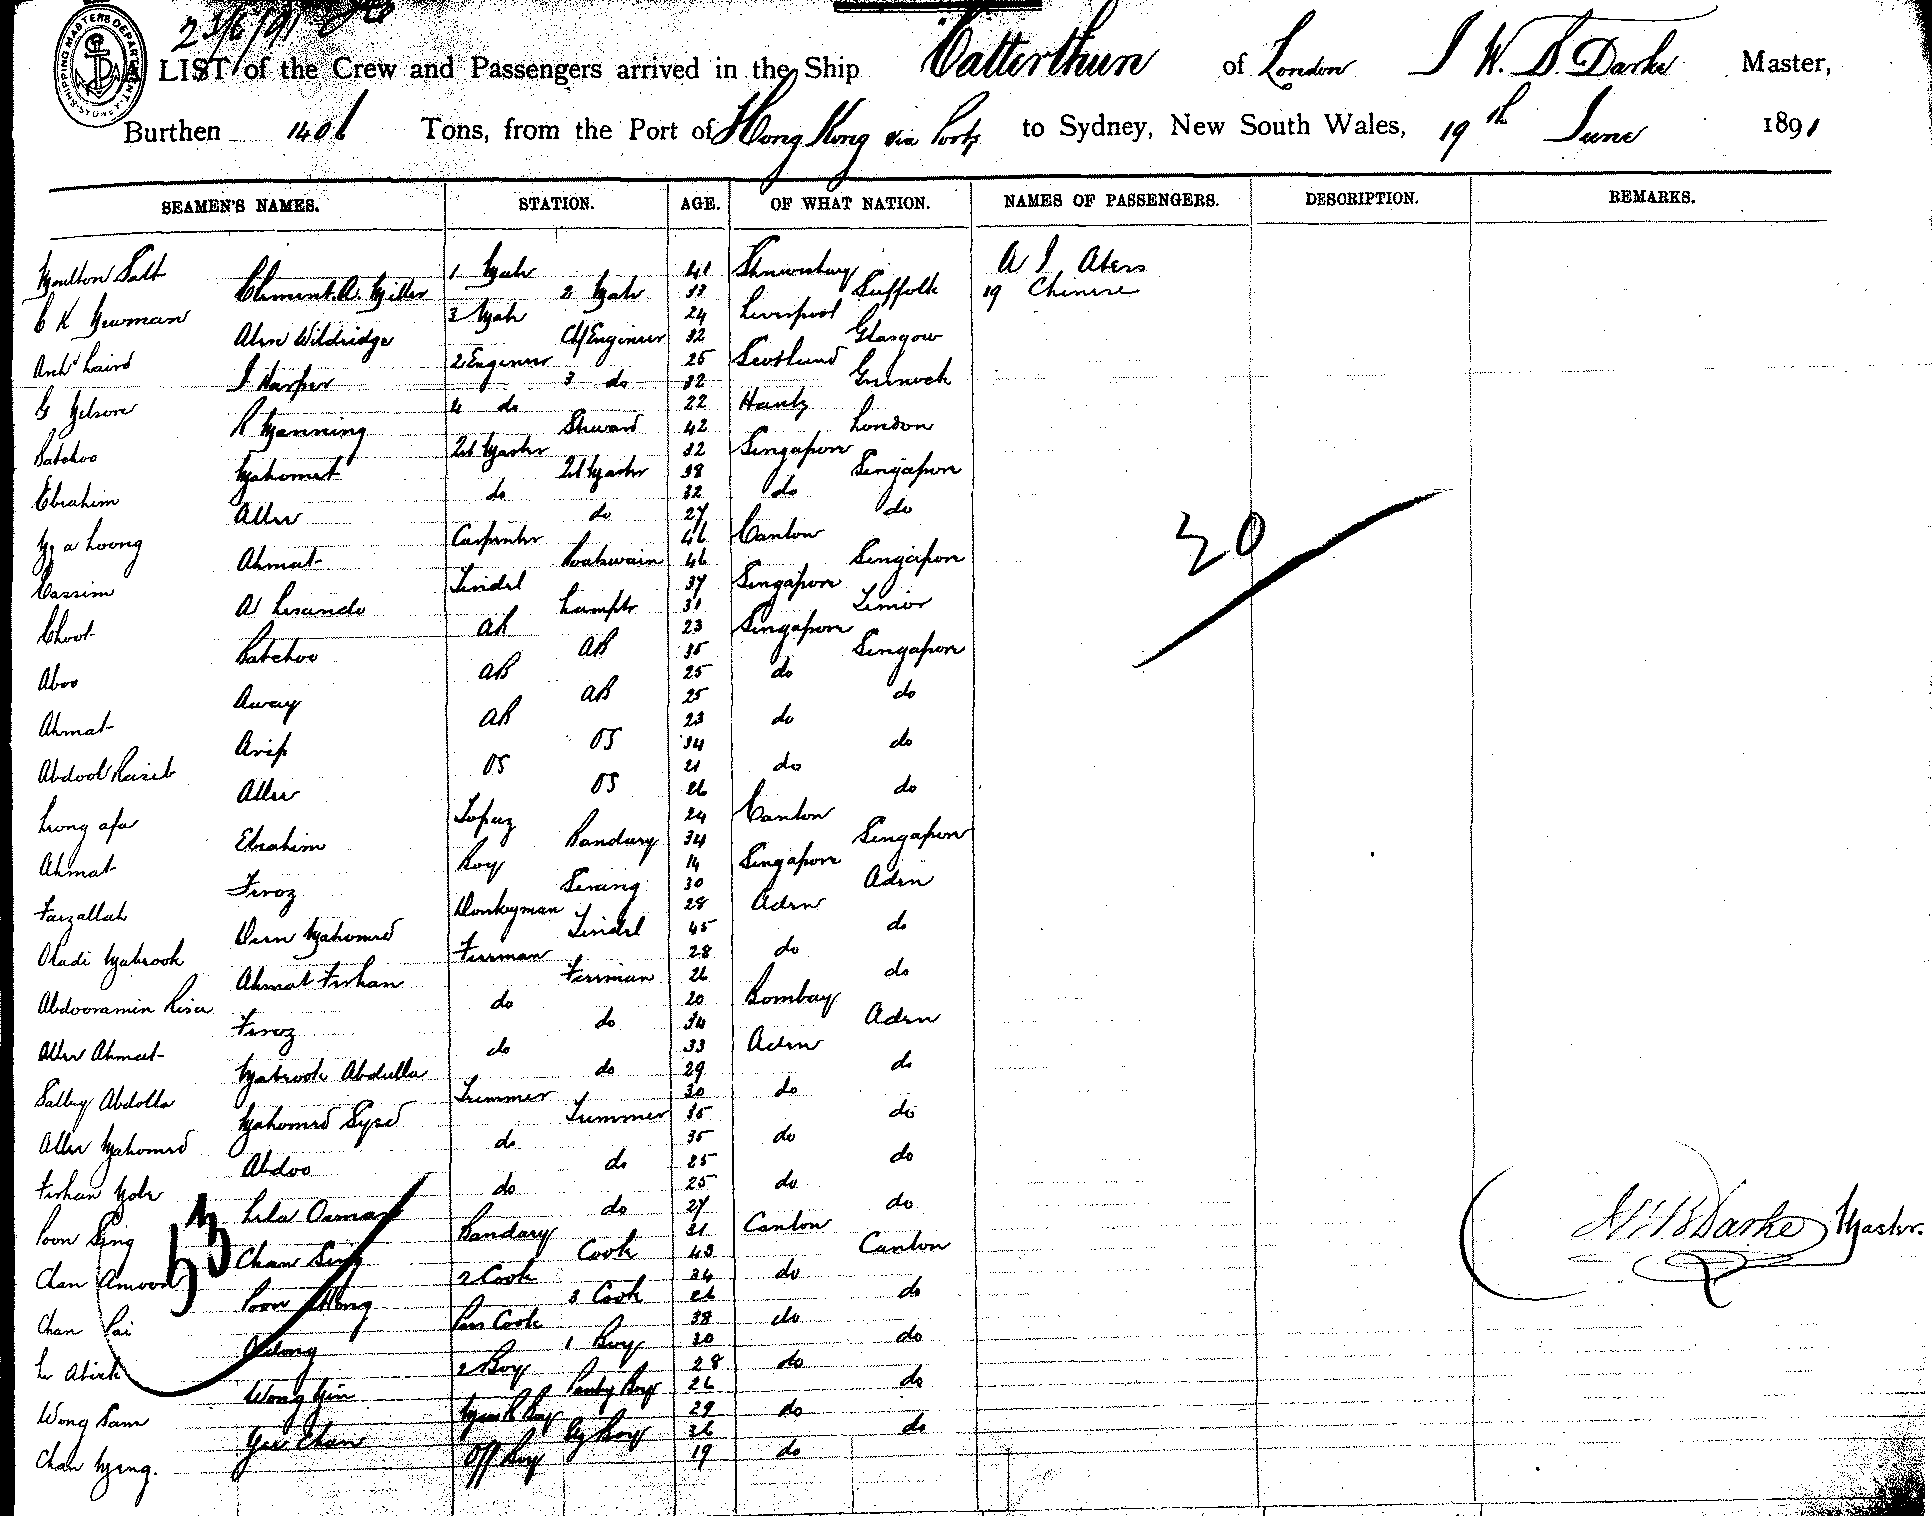 23/6/91
SHIPPING MASTERS DEPARTMENT. SYDNEY
LIST of the Crew and Passengers arrived in the Ship Catterthun of London J W. B. Darke Master,
Burthen 1406 Tons, from the Port of Hong Kong via Ports to Sydney, New South Wales, 19th June 1891
SEAMEN'S NAMES. STATION. AGE. OF WHAT NATION. NAMES OF PASSENGERS. DESCRIPTION. REMARKS.
Moulton Salt 1 Mate 41 Shrewsbury A J Akers
Clement A. Miller 2 Mate 33 Suffolk 19 Chinese
C K Newman 3 Mate 24 Liverpool
Alen Wildridge Cf Engineer 32 Glasgow
Archd Laird 2 Engineer 25 Scotland
J Harper 3 do 32 Greenock
G Nelson 4 do 22 Hants
R Manning Steward 42 London
Batchoo Qt Master 32 Singapore
Mahomet Qt Master 38 Singapore
Ebrahim do 32 do
Allee do 27 do
Ma Loong Carpenter 46 Canton
Ahmat Boatswain 46 Singapore
Cassim Tindel 37 Singapore
A Lisando Lamptr 31 Timor
Choot AB 23 Singapore
Batchoo AB 35 Singapore
Aboo AB 25 do
Away AB 25 do
Ahmat AB 23 do
Arip OS 34 do
Abdool OS 21 do
Allee OS 26 do
Leong Topaz 24 Canton
Ebrahim Bandary 34 Singapore
Ahmat Boy 14 Singapore
Feroz Serang 30 Aden
Faizallah Donkeyman 28 Aden
Deen Mahomed Tindel 45 do
Mabrook Fireman 28 do
Ahmat Firhan Fireman 26 do
do 20 Bombay
Feroz do 34 Aden
Allee Ahmat do 33 Aden
Mabrook Abdulla do 29 do
Salley Abdolla Trimmer 30 do
Mahomed Syed Trimmer 35 do
Allee Mahomed do 35 do
Abdoo do 25 do
Firhan do 25 do
Osman do 27 do
Poon Sing Bandary 31 Canton
Chan Sing Cook 43 Canton
Chan Amoon 2 Cook 34 do
Poon 3 Cook 26 do
Chan Pai Pass Cook 38 do
1 Boy 30 do
2 Boy 28 do
Wong Pantry Boy 26 do
Wong Sam Mess R Boy 29 do
Yee Chan Boy 26 do
Chan Off Boy 19 do
20
53
W B Darke Master.